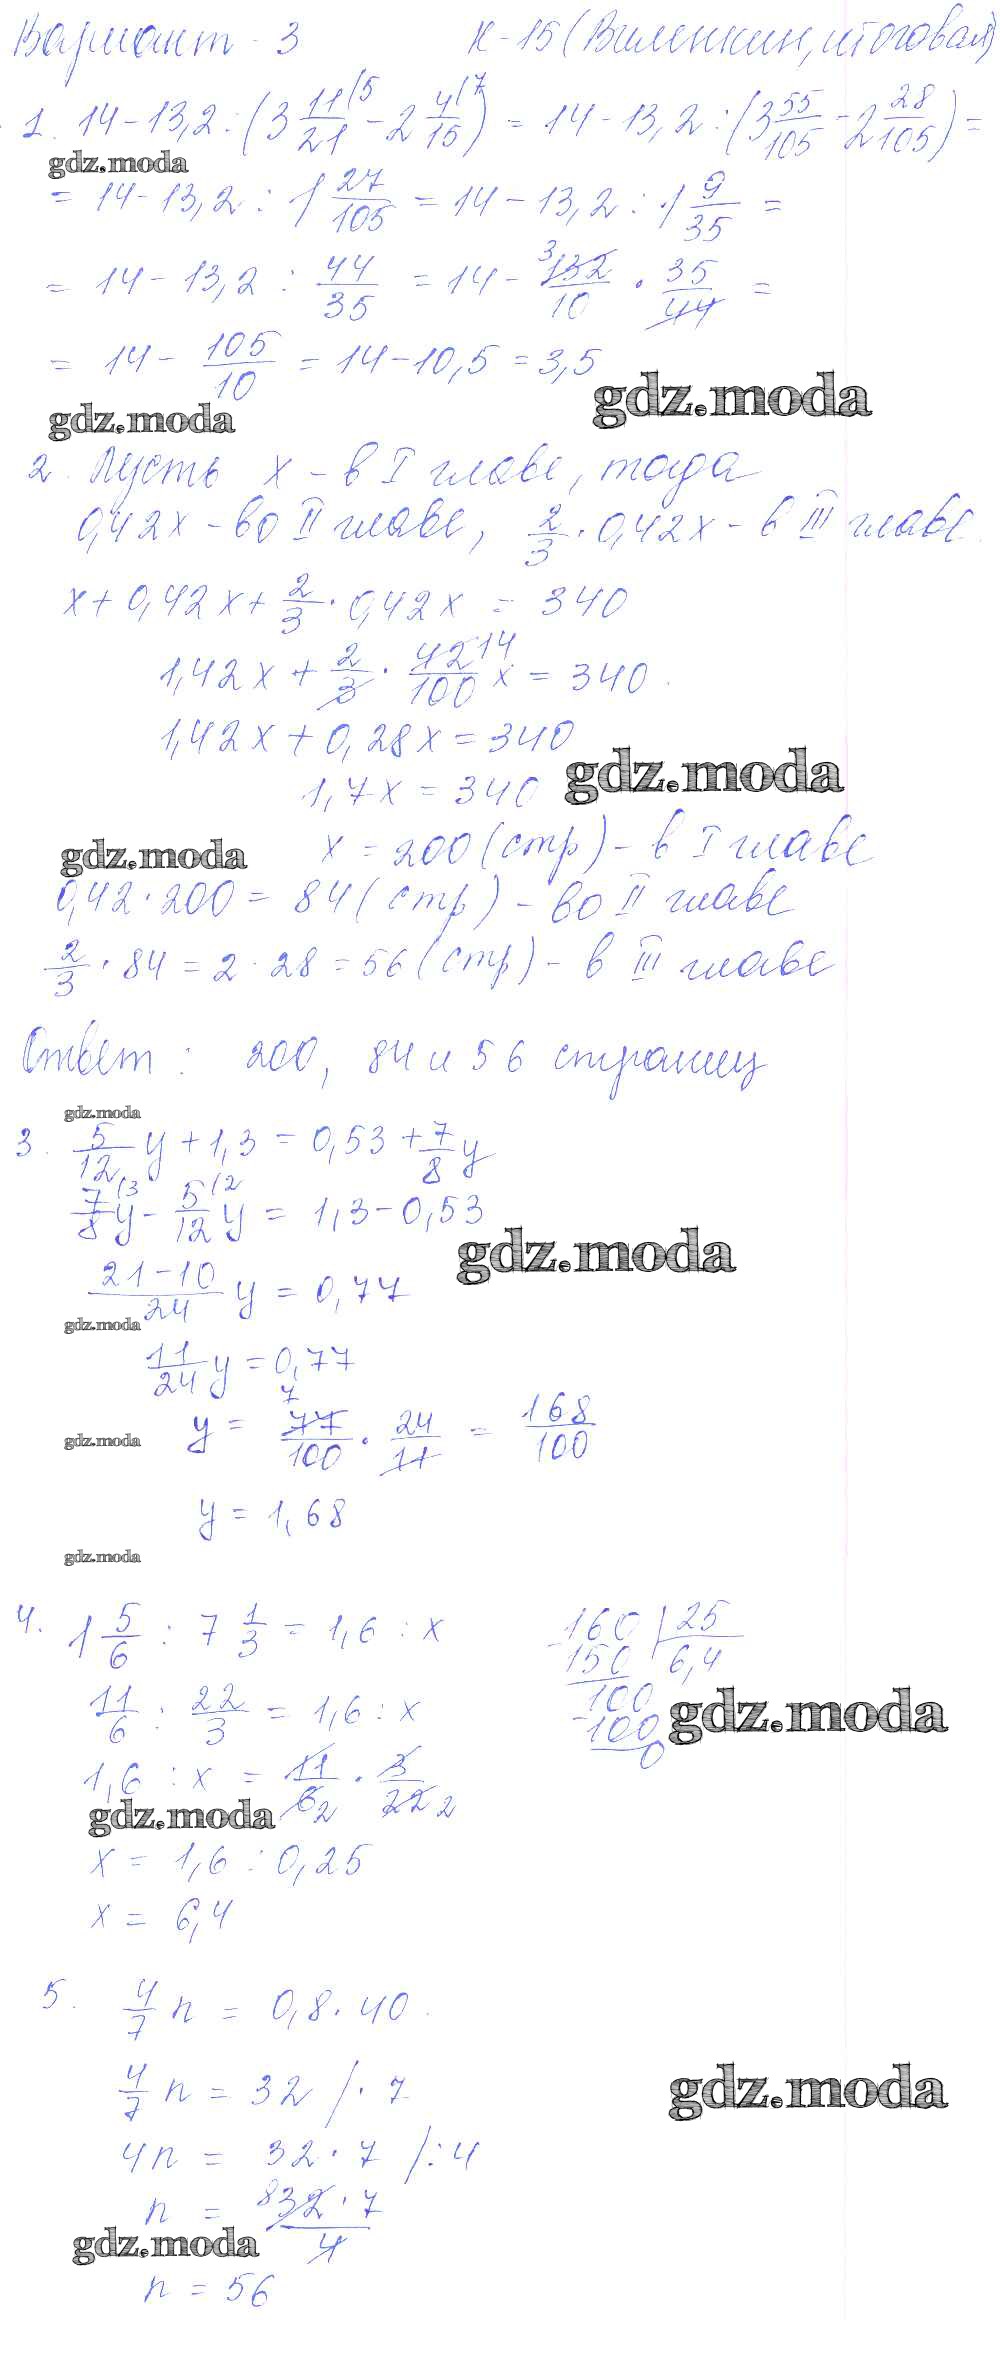 Вариант - 3 К-15 (Виленкин, итоговая)
1. 14 - 13,2 : (3 11/21 (5 - 2 4/15 (7) = 14 - 13,2 : (3 55/105 - 2 28/105) =
gdz.moda
= 14 - 13,2 : 1 27/105 = 14 - 13,2 : 1 9/35 =
= 14 - 13,2 : 44/35 = 14 - 3 132/10 · 35/44 =
= 14 - 105/10 = 14 - 10,5 = 3,5
gdz.moda
gdz.moda
2. Пусть x - в I главе, тогда
0,42x - во II главе, 2/3 · 0,42x - в III главе.
x + 0,42x + 2/3 · 0,42x = 340
1,42x + 2/3 · 42/100 14 x = 340.
1,42x + 0,28x = 340
gdz.moda
1,7x = 340
gdz.moda
x = 200 (стр) - в I главе
0,42 · 200 = 84 (стр) - во II главе
2/3 · 84 = 2 · 28 = 56 (стр) - в III главе
Ответ: 200, 84 и 56 страниц
gdz.moda
3. 5/12 y + 1,3 = 0,53 + 7/8 y
7/8 (3 y - 5/12 (2 y = 1,3 - 0,53
gdz.moda
21-10/24 y = 0,77
gdz.moda
11/24 y = 0,77
y = 7 77/100 · 24/11 = 168/100
gdz.moda
y = 1,68
gdz.moda
4. 1 5/6 : 7 1/3 = 1,6 : x
11/6 : 22/3 = 1,6 : x
1,6 : x = 11/6 2 · 3/22 2
gdz.moda
x = 1,6 : 0,25
x = 6,4
160 | 25
- 150 6,4
100
- 100
0
gdz.moda
5. 4/7 n = 0,8 · 40.
4/7 n = 32 / · 7
gdz.moda
4n = 32 · 7 / : 4
n = 8 32 · 7/4
gdz.moda
n = 56